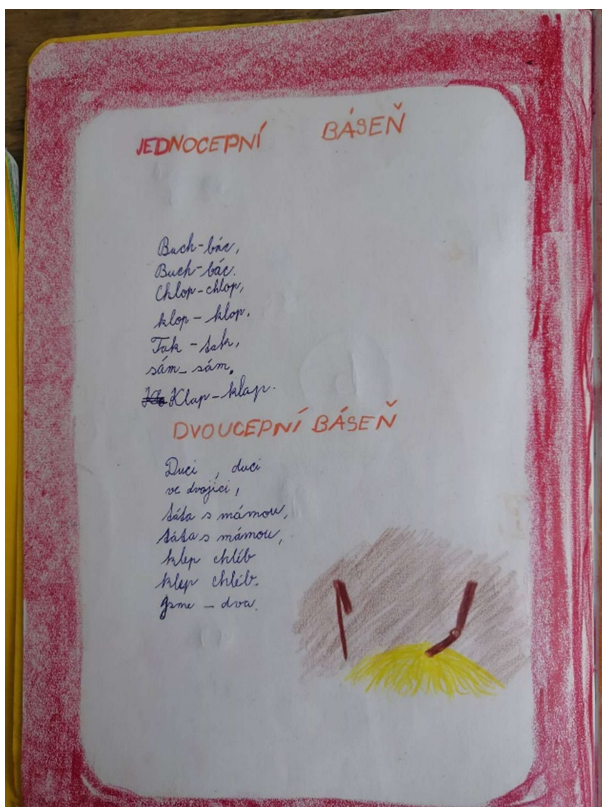 JEDNOCEPNÍ BÁSEŇ
Buch-bác,
Buch-bác.
Chlop-chlop,
klop-klop.
Tak-tak,
sám-sám.
Klap-klap.
DVOUCEPNÍ BÁSEŇ
Duci, duci
ve dvojici,
táta s mámou,
táta s mámou,
klep chléb
klep chléb.
Jsme - dva.